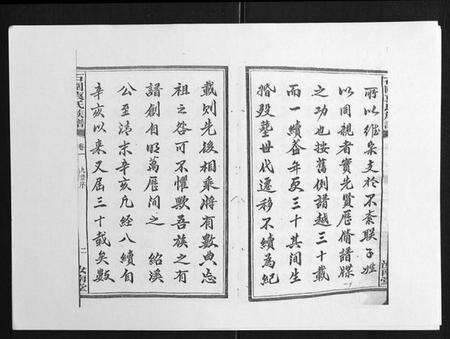 所以維宗支於不紊聯子姓
以同親者實先賢歷脩譜牒
之功也按舊例譜越三十載
而一續茲年更三十其間生
婚殁塟世代遷移不續爲紀
載則先後相乘將有數典忘
祖之咎可不懼歟吾族之有
譜創自明萬曆間之紹溪
公至清末辛亥凡經八續自
辛亥以來又屆三十載矣數
氏族譜
卷一